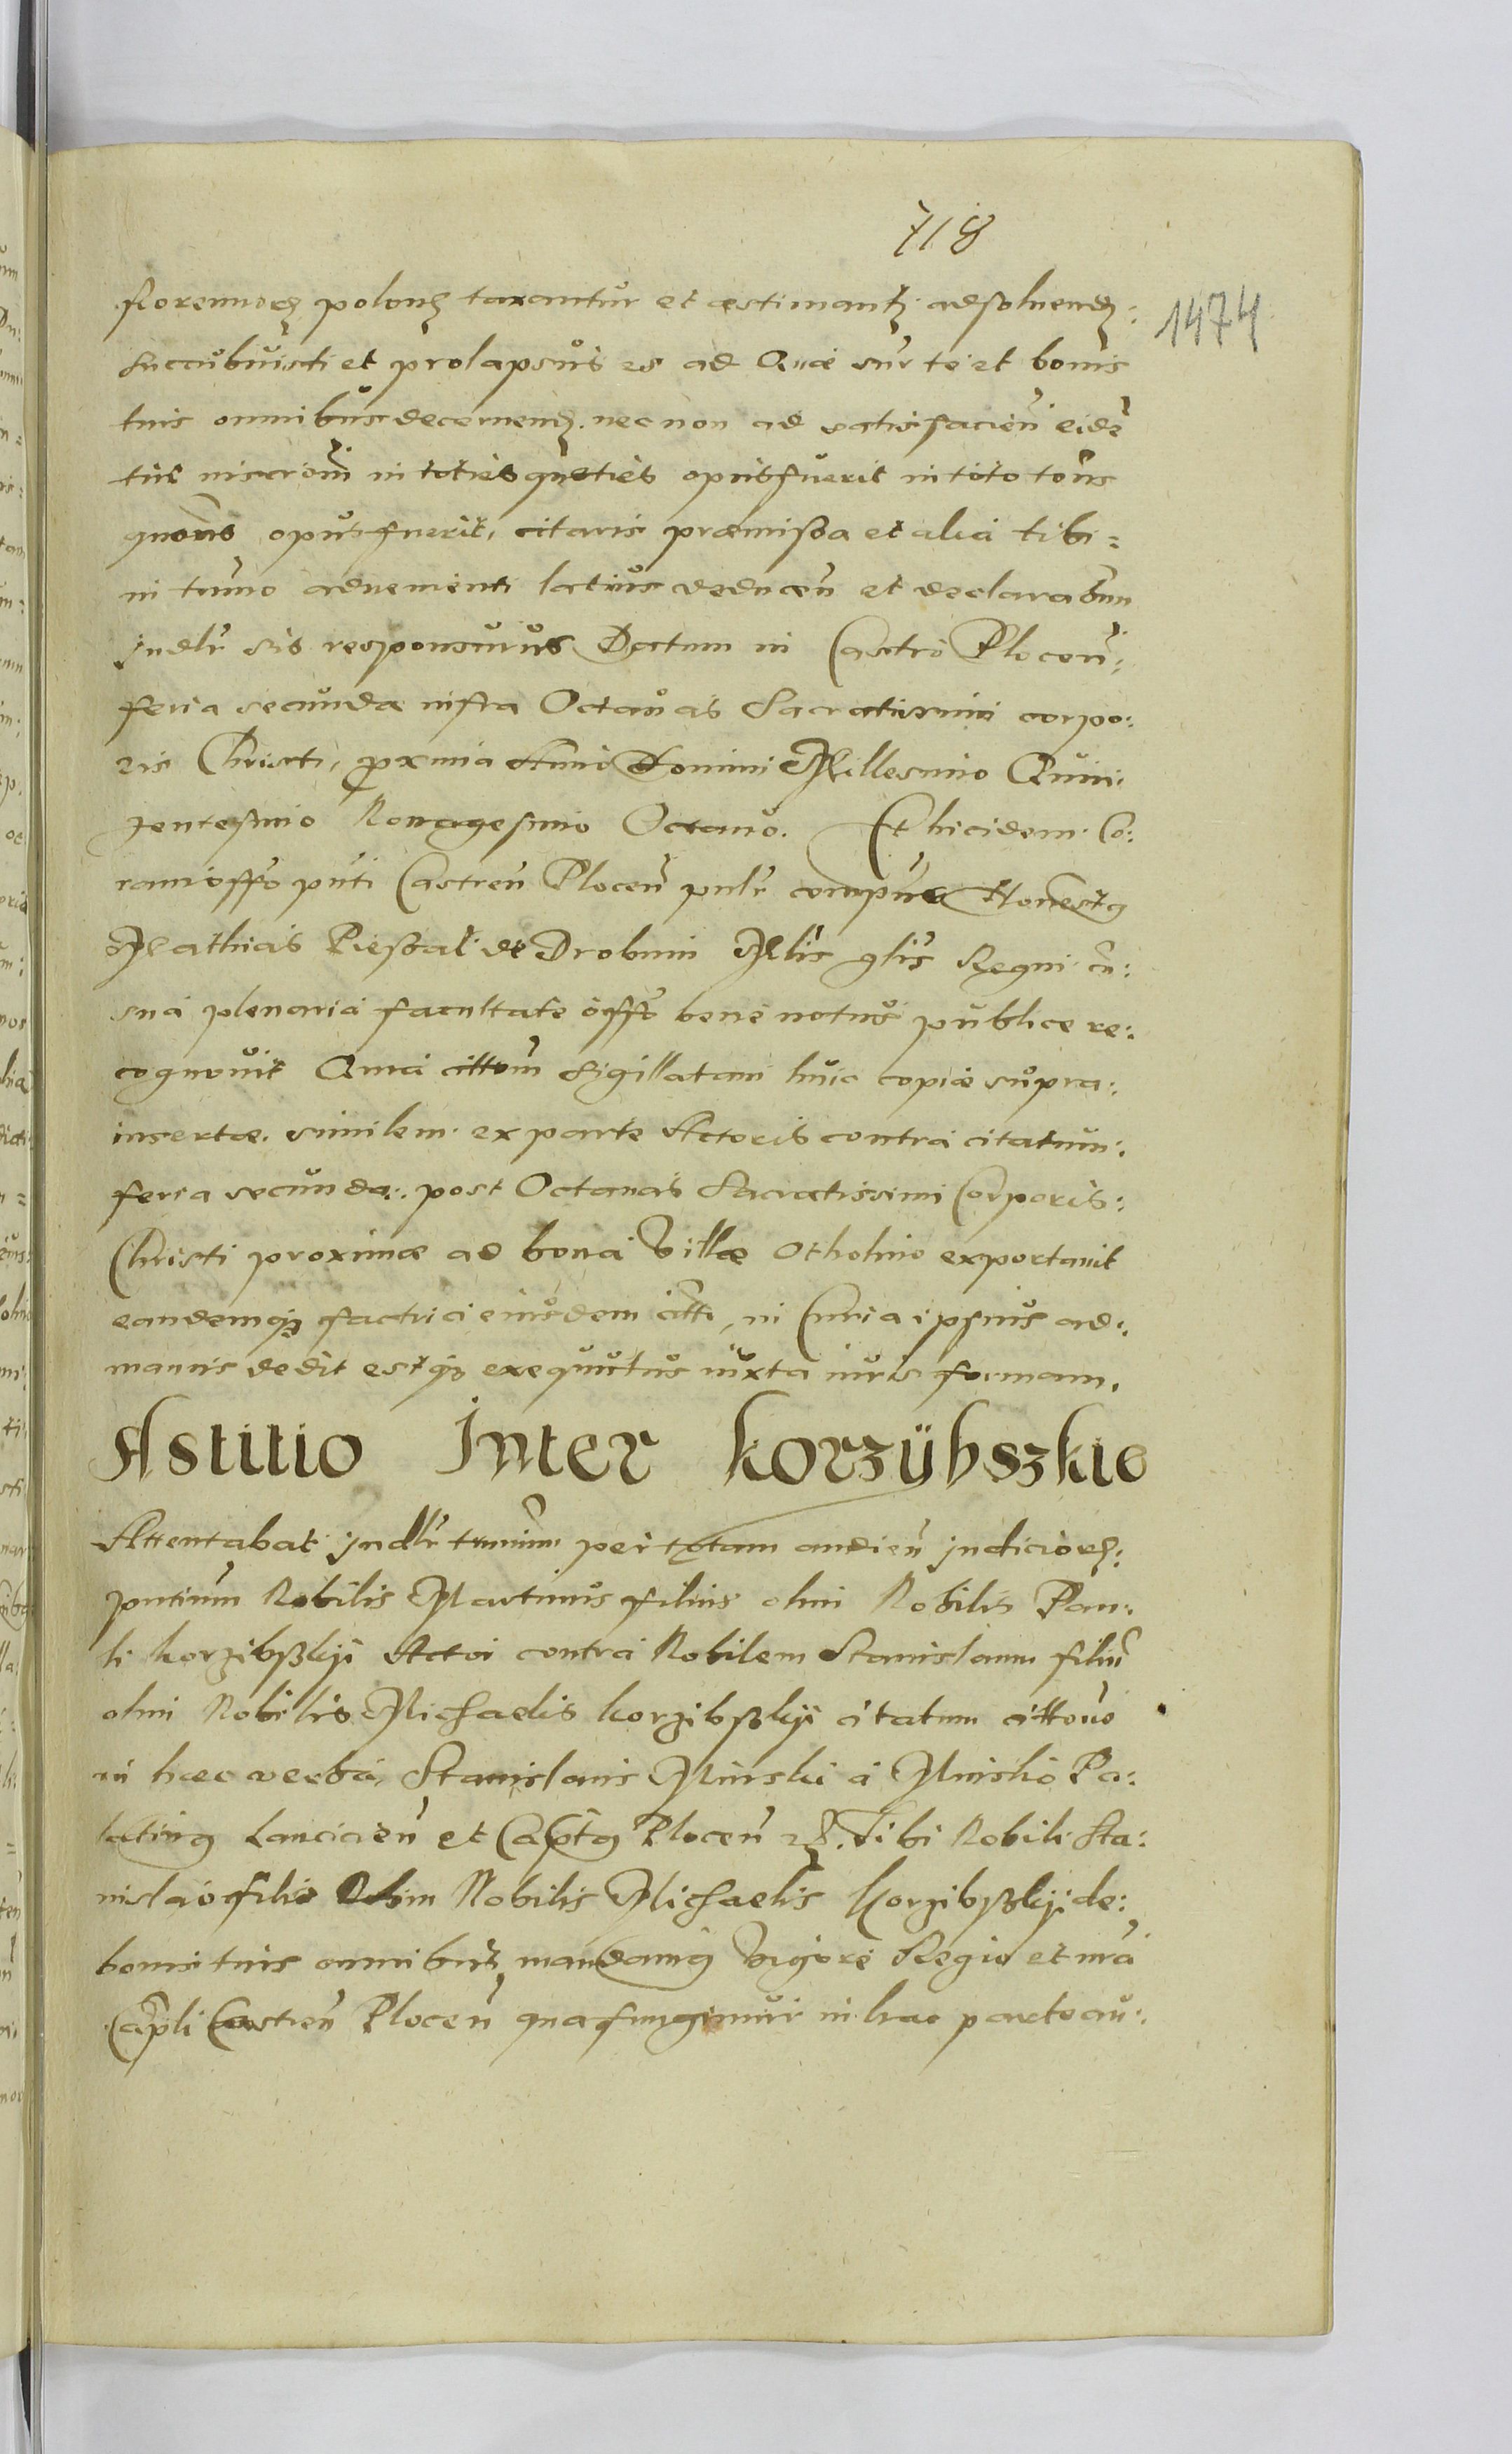 718
1474
florenorꝝ polonꝝ taxantur et æstimantꝝ adsoluendꝝ:
succubuisti et prolapsus es ad Quæ sur te et bonis
tuis omnibus decernendꝝ. nec non ad satisfacien̄ eidē
in toties quoties opus fuerit in toto tōns
quoties opus fuerit, citaris præmissa et alia tibi=
in tm̄no aduenienti latius deducen̄ et declarabun̄
Judlr̄ sis responsurus Datum in Castro Plocen̄:
feria secunda infra Octauas Sacratissimi corpo:
ris Christi, pxmia Anno Domini Millesimo Quin:
gentesimo Nonagesimo Octauo. Et hic idem Co:
ram offo pn̄ti Castren̄ Plocen̄ pnlr̄ compūes Honestꝯ
Mathias Piessak de Drobnin Mlis̄ glis̄ Regni cū:
sua plenaria facultate offo bene notus publice re:
cognouit Quia cittōm Sigillatam huic copiæ supra:
insertæ. similem. ex parte Actoris contra citatum:
feria secunda:. post Octauas Sacratissimi Corporis:
Christi proximæ ad bona Villæ Otholino exportauit
eandemqꝫ factrici eiusdem citti, in Curia ipsius ad:
manus dedit estqꝫ exequutus iuxta iuris formam.
Astitio Inter Korzÿbszkie
Attentabat Judlr̄ tminum per totam audien̄ judiciorꝝ:
pn̄tium Nobilis Martinus filius olim Nobilis Pau:
li korzibßkÿ Actor contra Nobilem Stanislaum filiū
olim Nobilis Michaelis korzibßkÿ citatum cittōne
in hæc verba, Stanislaus Minski a Minsko Pa:
latinꝯ Lancicien̄ et Captꝯ Plocen̄ ꝛꝝ. Tibi Nobili Sta:
nislao filio Olim Nobilis Michaelis Korzibßkÿ de:
bonis tuis omnibus, mandamꝯ vigore Regia et nr̄a
Capli Castren̄ Plocen̄ qua fungimur in hac parte au: